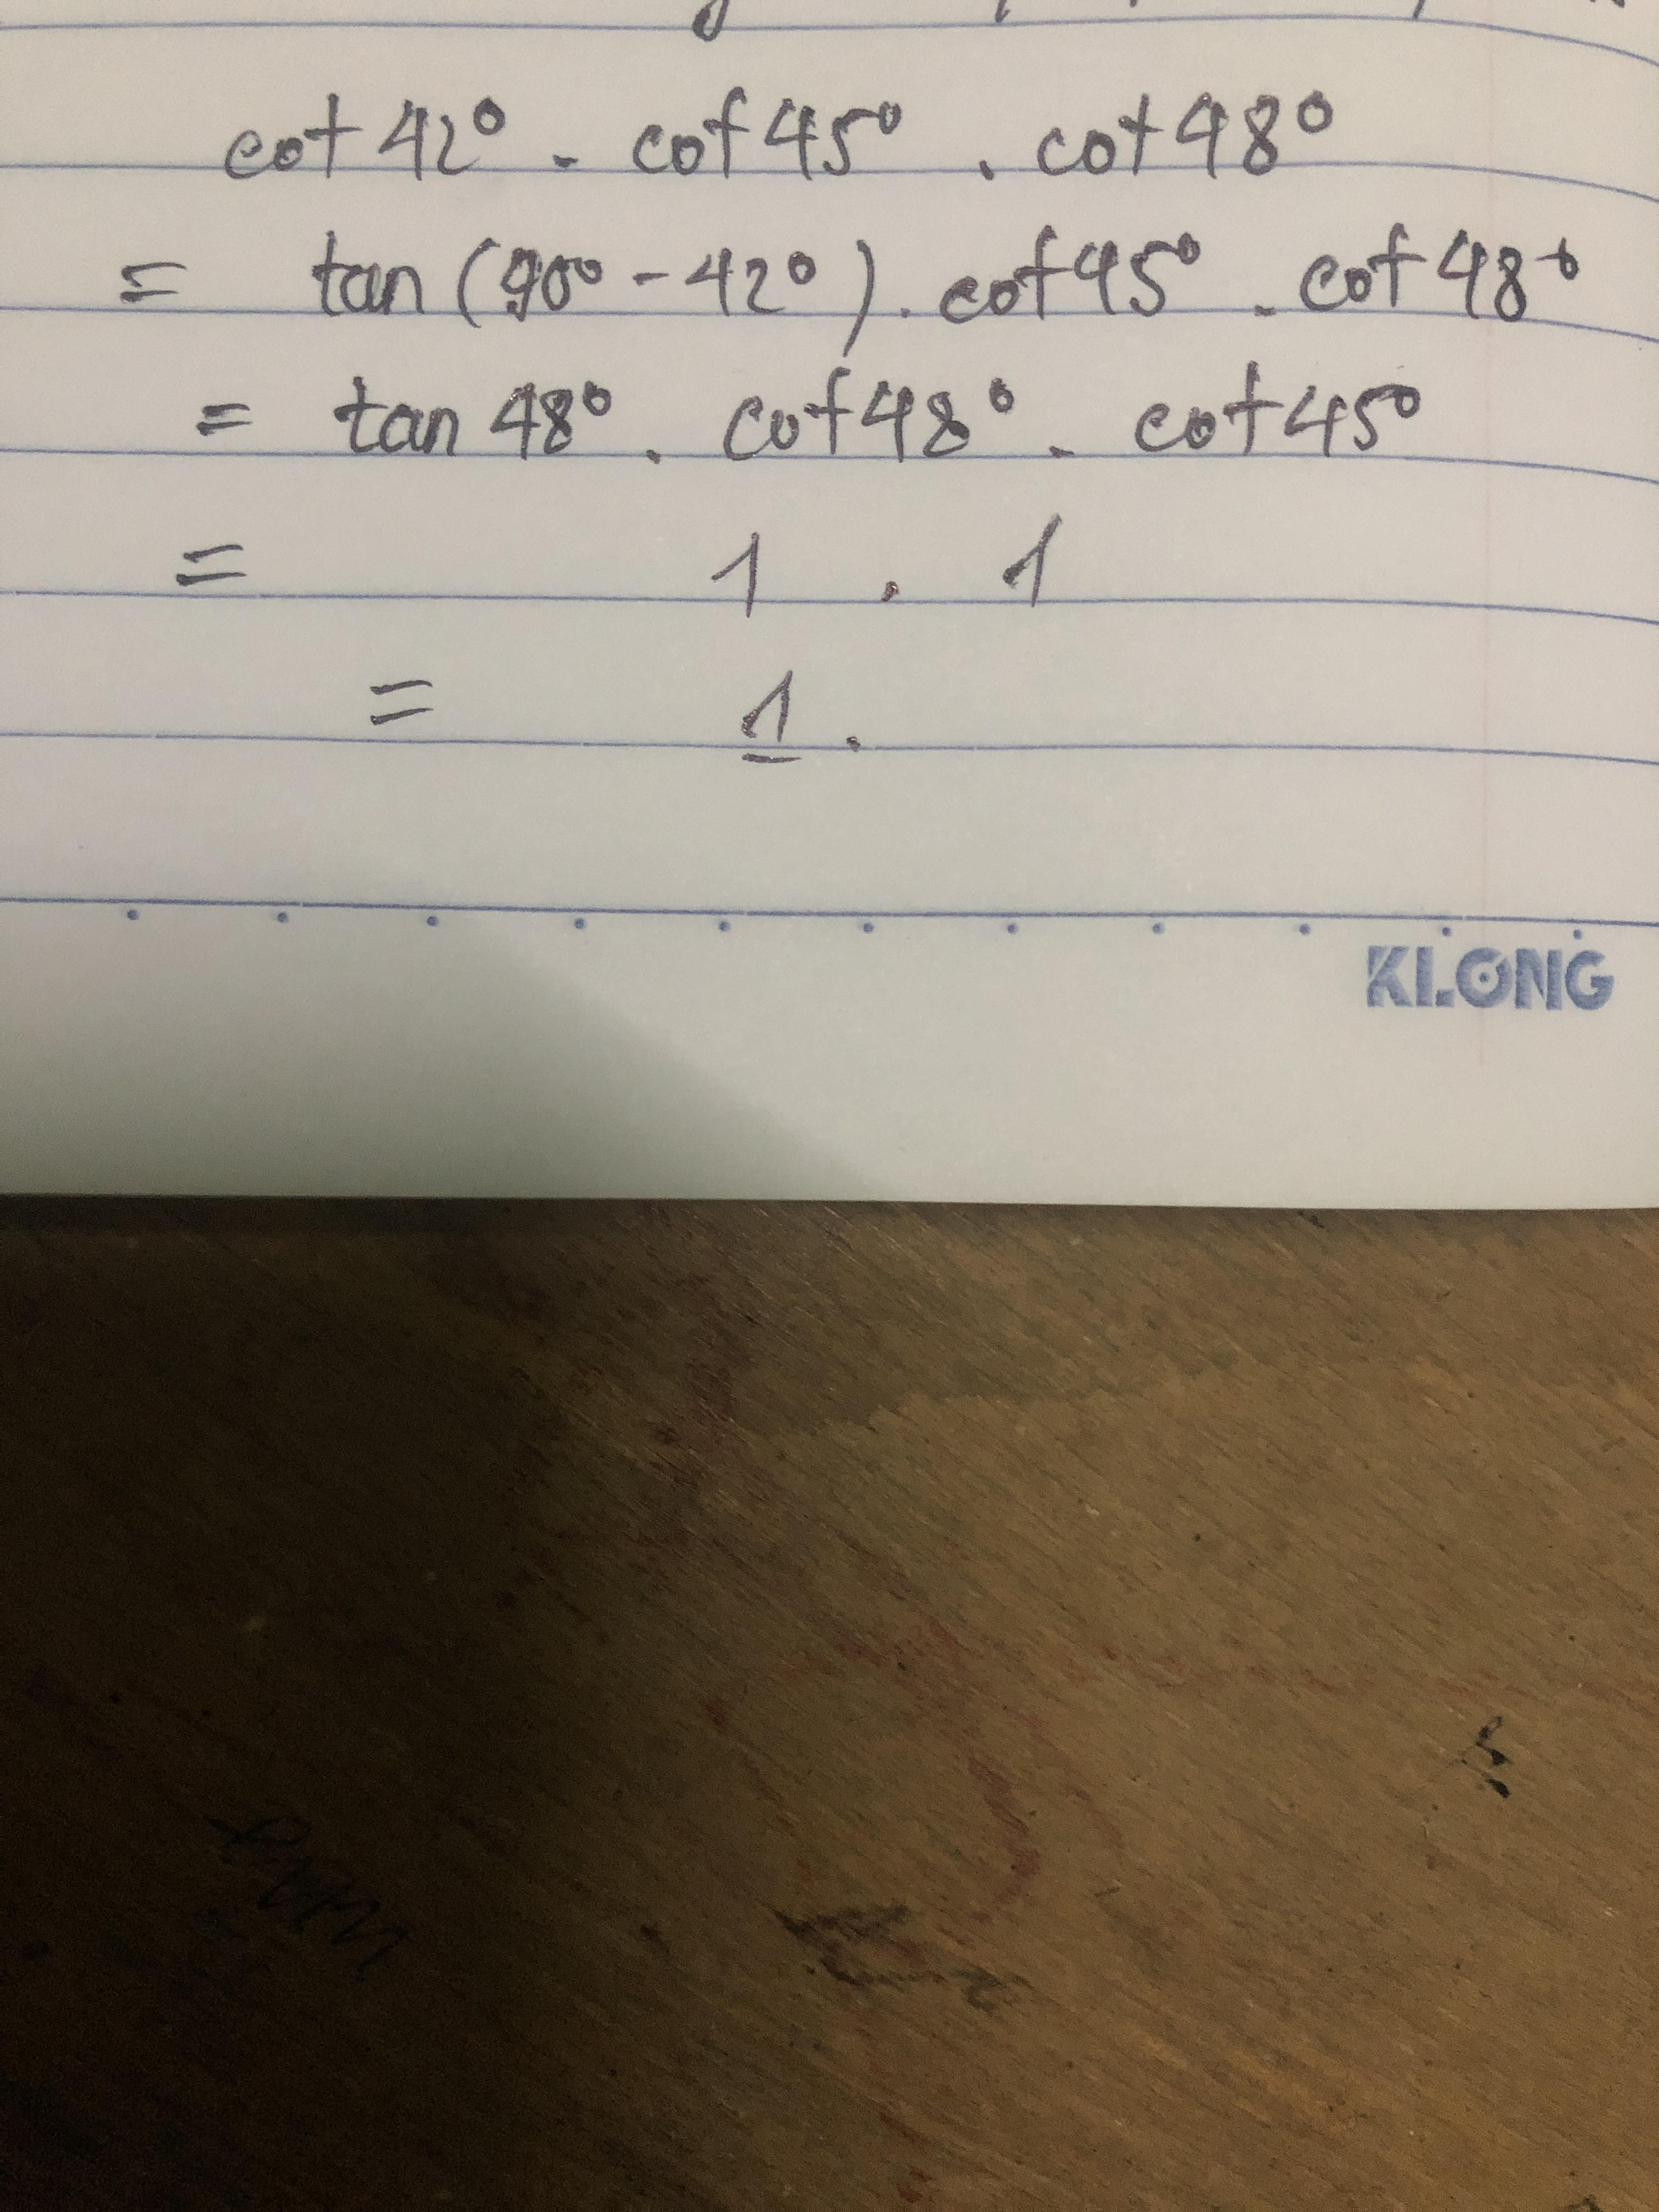 cot 42° . cot 45° . cot 48°
= tan (90° - 42°) . cot 45° . cot 48°
= tan 48° . cot 48° . cot 45°
= 1 . 1
= 1.
KLONG